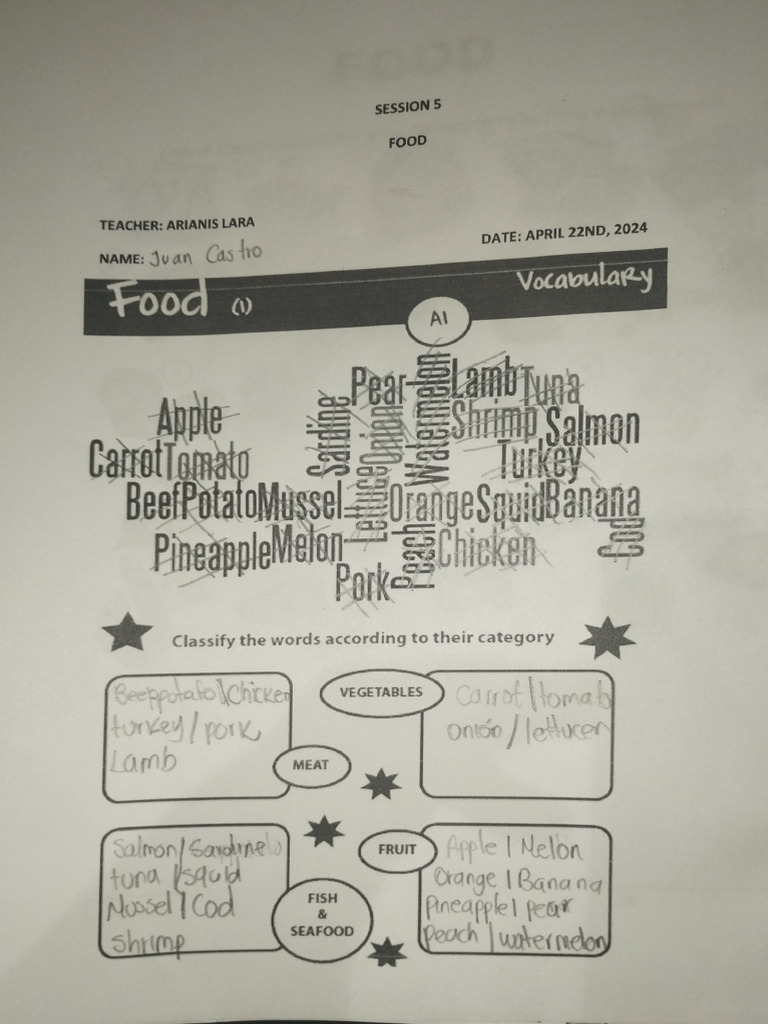 SESSION 5
FOOD
TEACHER: ARIANIS LARA
NAME: Juan Castro
DATE: APRIL 22ND, 2024
Food (1)
Vocabulary
A1
Pear
Watermelon
Lamb
Tuna
Apple
Sardine
Onion
Shrimp
Salmon
Carrot
Tomato
Lettuce
Turkey
Beef
Potato
Mussel
Orange
Squid
Banana
Pineapple
Melon
Peach
Chicken
Cod
Pork
Classify the words according to their category
Beefpotato/Chicken
turkey/pork
Lamb
MEAT
VEGETABLES
Carrot/tomato
onión/lettucer
Salmon/Sardine
tuna/squid
Mussel/Cod
shrimp
FISH
&
SEAFOOD
FRUIT
Apple/Melon
Orange/Banana
Pineapple/pear
peach/watermelon